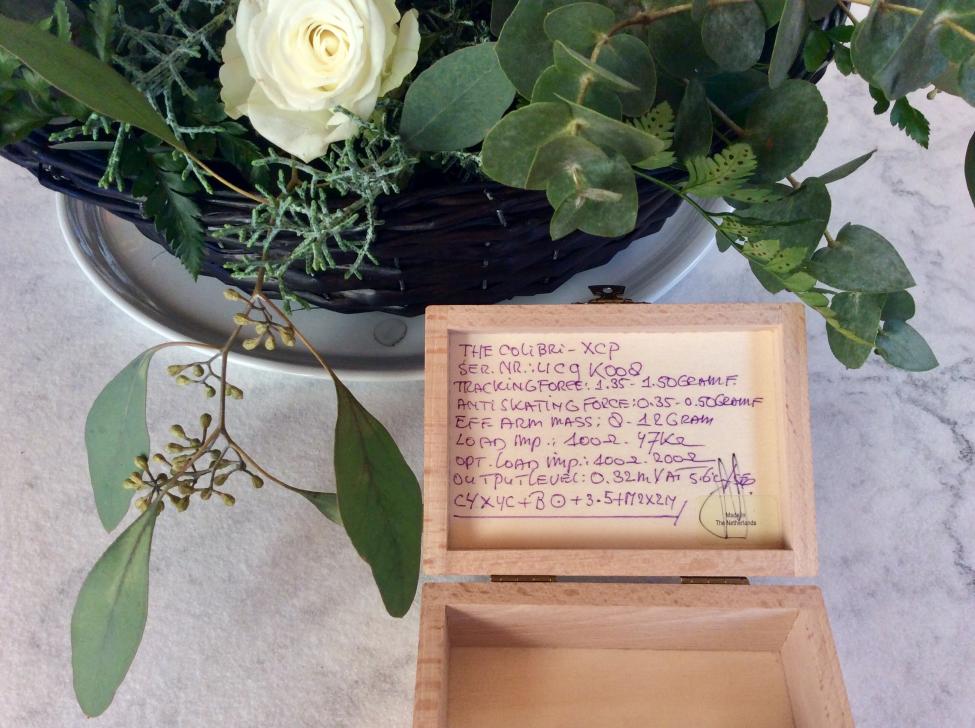 THE COLIBRI-XCP
SER. NR.: 4CQ K008
TRACKING FORCE: 1.35 - 1.50 GRAMF
ANTI SKATING FORCE: 0.35 - 0.50 GRAMF
EFF ARM MASS: 8 - 12 GRAM
LOAD IMP.: 100Ω - 47KΩ
OPT. LOAD IMP.: 100Ω - 200Ω
OUTPUT LEVEL: 0.32mV AT 5.6
C4X4C+B⊙+3.5+M2X2M
Made in
The Netherlands